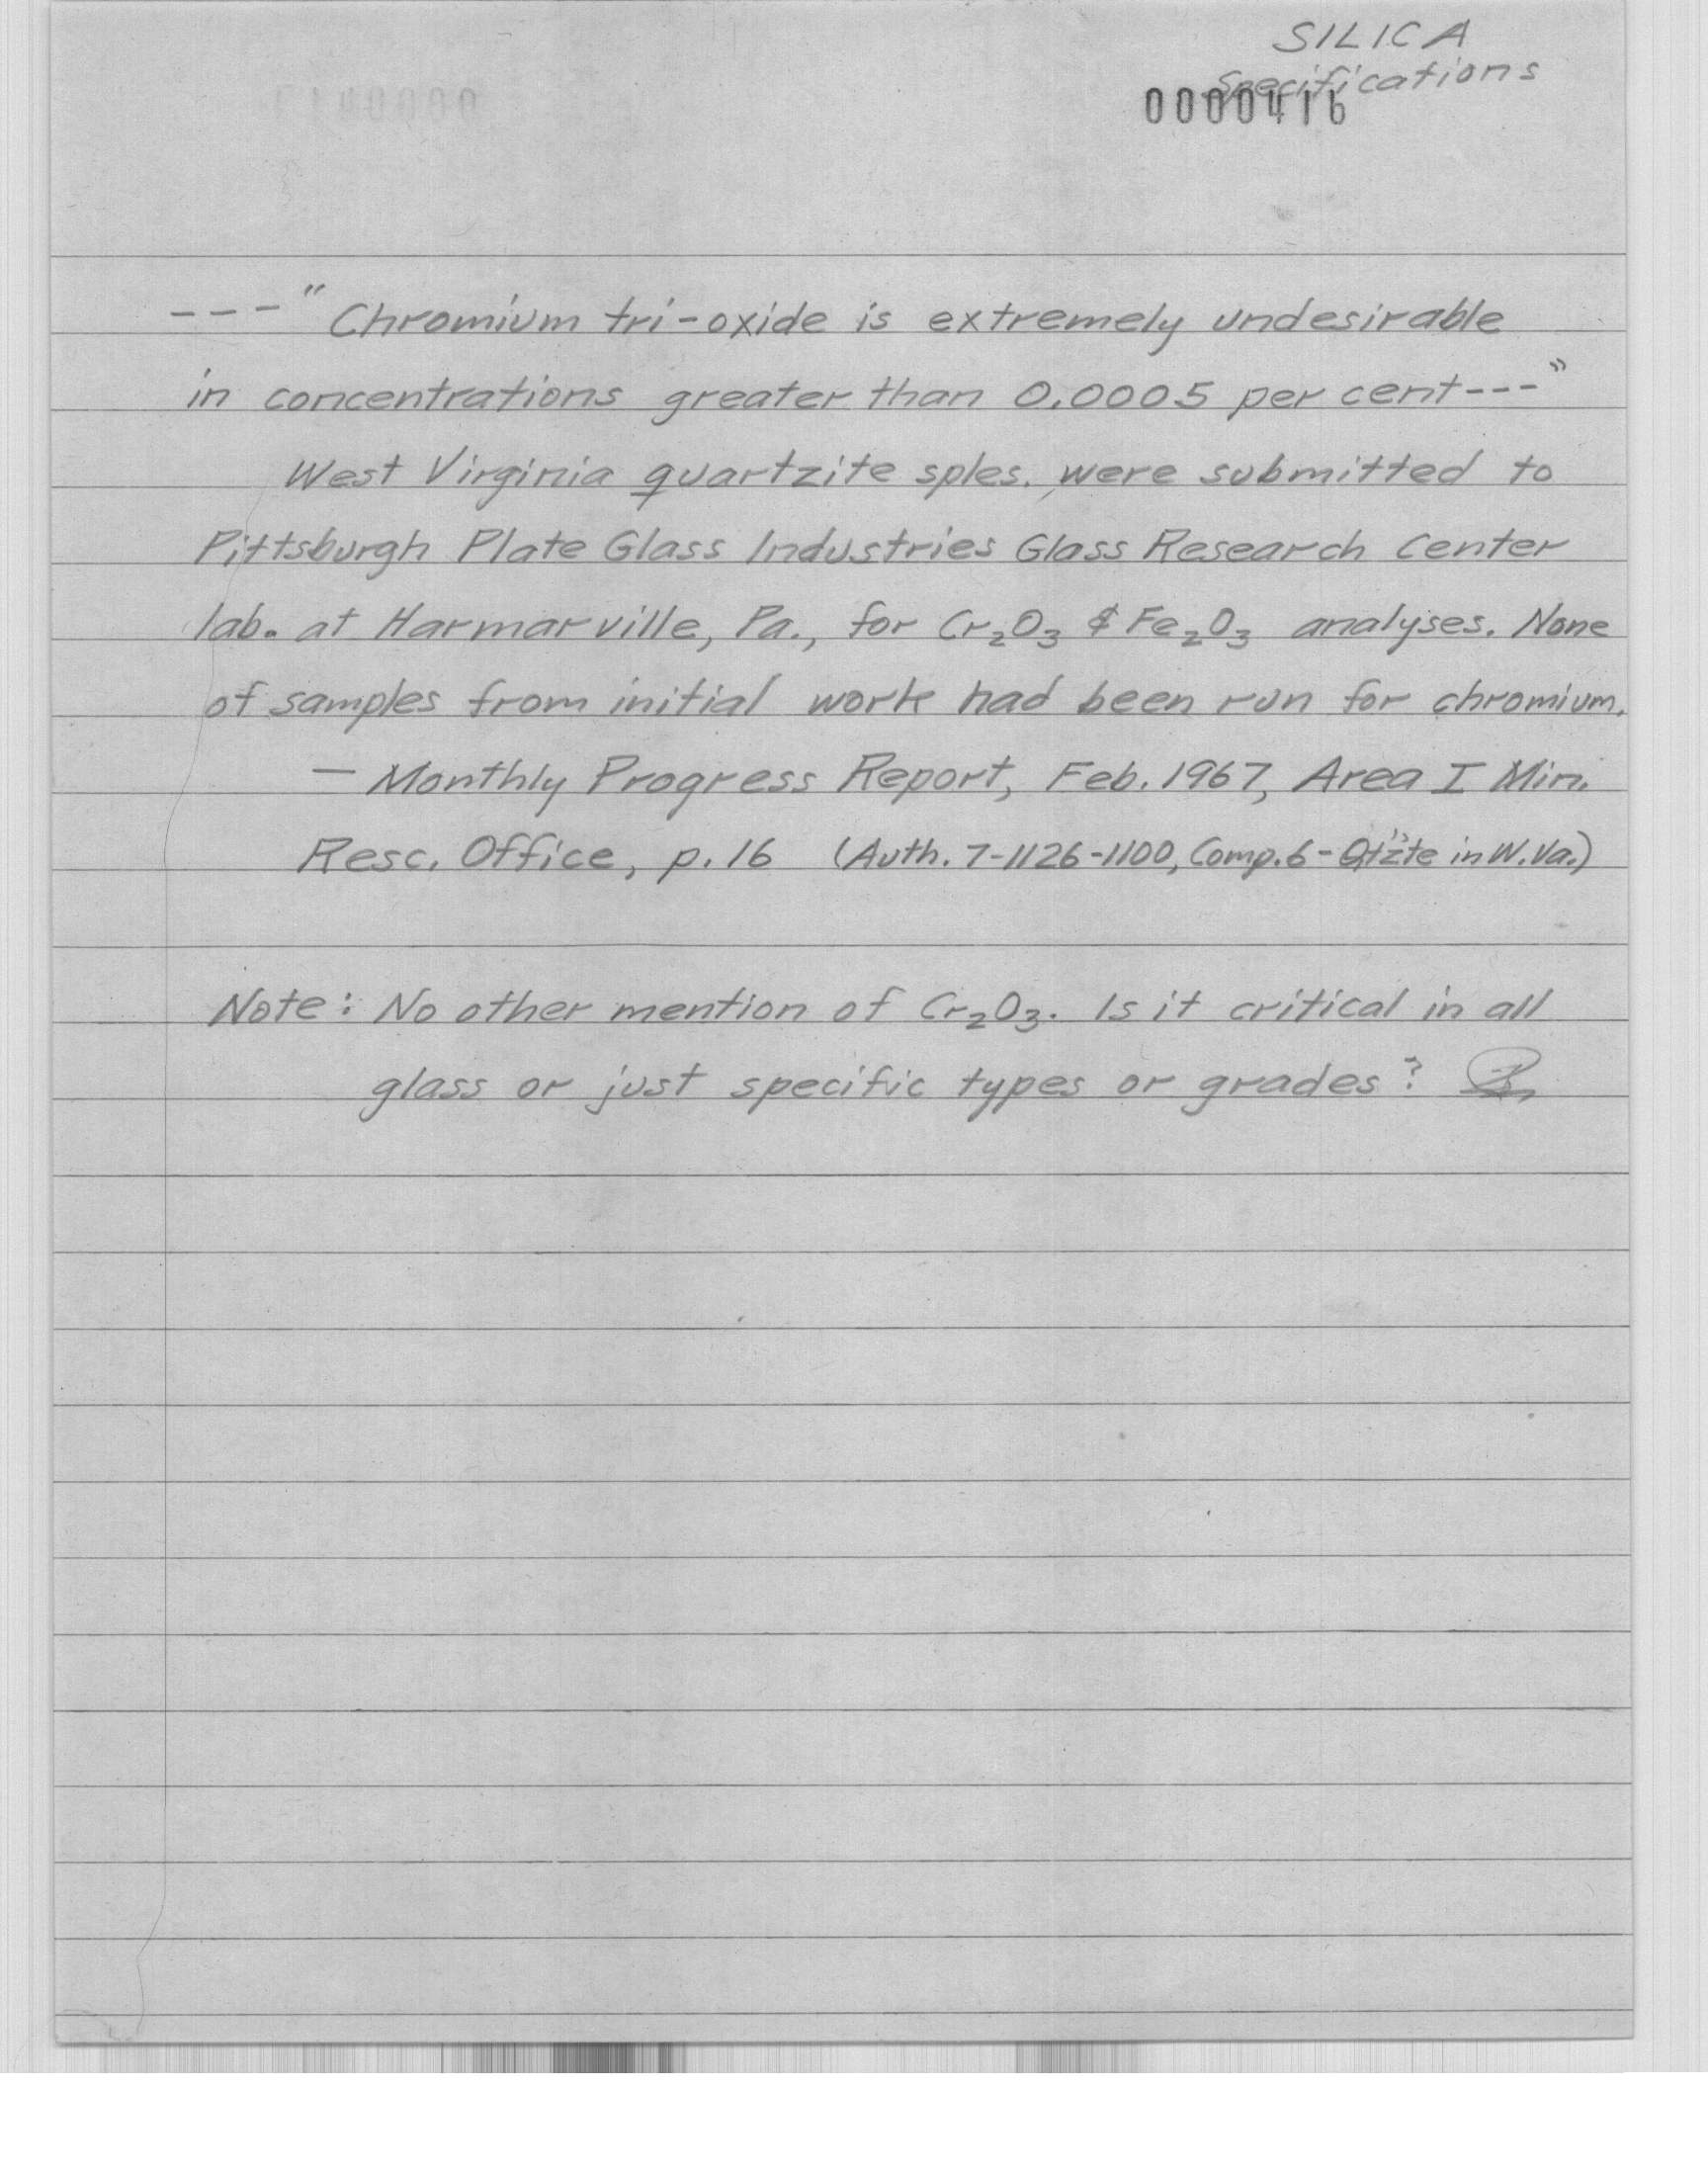 SILICA
Specifications
0000416
---" Chromium tri-oxide is extremely undesirable
in concentrations greater than 0.0005 per cent---"
West Virginia quartzite sples. were submitted to
Pittsburgh Plate Glass Industries Glass Research Center
lab. at Harmarville, Pa., for Cr₂O₃ & Fe₂O₃ analyses. None
of samples from initial work had been run for chromium.
— Monthly Progress Report, Feb. 1967, Area I Min.
Resc. Office, p. 16 (Auth. 7-1126-1100, Comp. 6 - Qtzte in W. Va.)
Note: No other mention of Cr₂O₃. Is it critical in all
glass or just specific types or grades?